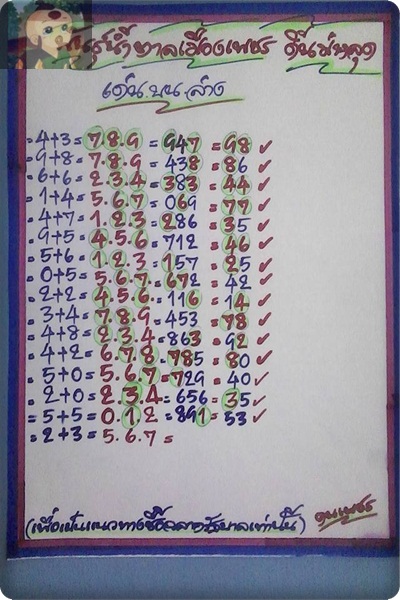 เด่น บน ล่าง
4+3= 7.8.9 = 947 = 98 ✓
9+8= 7.8.9 = 438 = 86 ✓
6+6= 2.3.4 = 383 = 44 ✓
1+4= 5.6.7 = 069 = 77 ✓
4+7= 1.2.3 = 286 = 35 ✓
9+5= 4.5.6 = 712 = 46 ✓
5+6= 1.2.3 = 157 = 25 ✓
0+5= 5.6.7 = 672 = 42 ✓
2+2= 4.5.6 = 116 = 14 ✓
3+4= 7.8.9 = 453 = 78 ✓
4+8= 2.3.4 = 863 = 92 ✓
4+2= 6.7.8 = 785 = 80 ✓
5+0= 5.6.7 = 729 = 40 ✓
2+0= 2.3.4 = 656 = 35 ✓
5+5= 0.1.2 = 891 = 53 ✓
2+3= 5.6.7 =
(เพื่อเป็นแนวทางซื้อสลากรัฐบาลเท่านั้น)